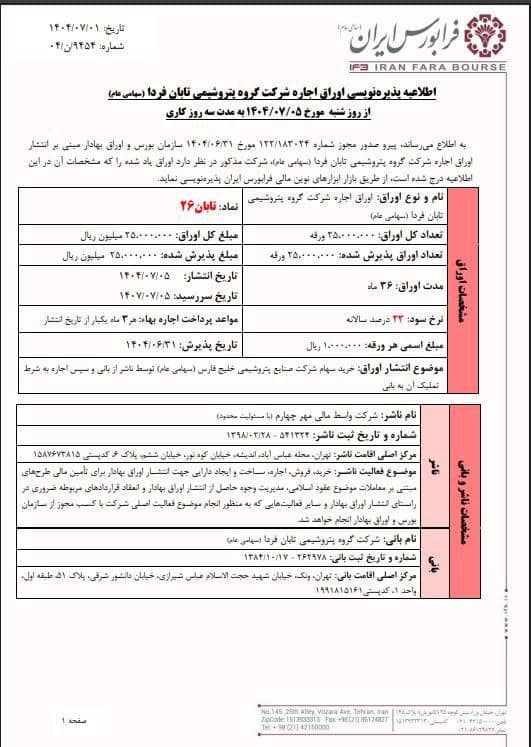 تاریخ: ۱۴۰۴/۰۷/۰۱
شماره: ۰۴/ن/۹۴۵۴
فرابورس ایران (سهامی عام)
IFB IRAN FARA BOURSE
اطلاعیه پذیره‌نویسی اوراق اجاره شرکت گروه پتروشیمی تابان فردا (سهامی عام)
از روز شنبه مورخ ۱۴۰۴/۰۷/۰۵ به مدت سه روز کاری
به اطلاع می‌رساند، پیرو صدور مجوز شماره ۱۲۲/۱۸۳۰۲۴ مورخ ۱۴۰۴/۰۶/۳۱ سازمان بورس و اوراق بهادار مبنی بر انتشار
اوراق اجاره شرکت گروه پتروشیمی تابان فردا (سهامی عام)، شرکت مذکور در نظر دارد اوراق یاد شده را که مشخصات آن در این
اطلاعیه درج شده است، از طریق بازار ابزارهای نوین مالی فرابورس ایران پذیره‌نویسی نماید.
مشخصات اوراق
نام و نوع اوراق: اوراق اجاره شرکت گروه پتروشیمی
تابان فردا (سهامی عام)
نماد: تابان۲۶
تعداد کل اوراق: ۲۵،۰۰۰،۰۰۰ ورقه
مبلغ کل اوراق: ۲۵،۰۰۰،۰۰۰ میلیون ریال
تعداد اوراق پذیرش شده: ۲۵،۰۰۰،۰۰۰ ورقه
مبلغ پذیرش شده: ۲۵،۰۰۰،۰۰۰ میلیون ریال
مدت اوراق: ۳۶ ماه
تاریخ انتشار: ۱۴۰۴/۰۷/۰۵
تاریخ سررسید: ۱۴۰۷/۰۷/۰۵
نرخ سود: ۲۳ درصد سالانه
مواعد پرداخت اجاره بهاء: هر ۳ ماه یکبار از تاریخ انتشار
مبلغ اسمی هر ورقه: ۱،۰۰۰،۰۰۰ ریال
تاریخ پذیرش: ۱۴۰۴/۰۶/۳۱
موضوع انتشار اوراق: خرید سهام شرکت صنایع پتروشیمی خلیج فارس (سهامی عام) توسط ناشر از بانی و سپس اجاره به شرط
تملیک آن به بانی
مشخصات ناشر و بانی
ناشر
نام ناشر: شرکت واسط مالی مهر چهارم (با مسئولیت محدود)
شماره و تاریخ ثبت ناشر: ۵۴۱۳۲۴ - ۱۳۹۸/۰۲/۲۸
مرکز اصلی اقامت ناشر: تهران، محله عباس آباد، اندیشه، خیابان کوه نور، خیابان ششم، پلاک ۶، کدپستی ۱۵۸۷۶۷۳۸۱۵
موضوع فعالیت ناشر: خرید، فروش، اجاره، ساخت و ایجاد دارایی جهت انتشار اوراق بهادار برای تأمین مالی طرح‌های
مبتنی بر معاملات موضوع عقود اسلامی، مدیریت وجوه حاصل از انتشار اوراق بهادار و انعقاد قراردادهای مربوطه ضروری در
راستای انتشار اوراق بهادار و سایر فعالیت‌هایی که به منظور انجام موضوع فعالیت اصلی شرکت با کسب مجوز از سازمان
بورس و اوراق بهادار انجام خواهد شد.
بانی
نام بانی: شرکت گروه پتروشیمی تابان فردا (سهامی عام)
شماره و تاریخ ثبت بانی: ۲۶۲۹۷۸ - ۱۳۸۴/۱۰/۱۷
مرکز اصلی اقامت بانی: تهران، ونک، خیابان شهید حجت الاسلام عباس شیرازی، خیابان دانشور شرقی، پلاک ۵۱، طبقه اول،
واحد ۱، کدپستی۱۹۹۱۸۱۵۱۶۱
No.145 ,25th Alley, Vozara Ave, Tehran, Iran
ZipCode 1513933313 Fax +98(21) 86124827
Tel: + 98 (21) 42150000
صفحه ۱